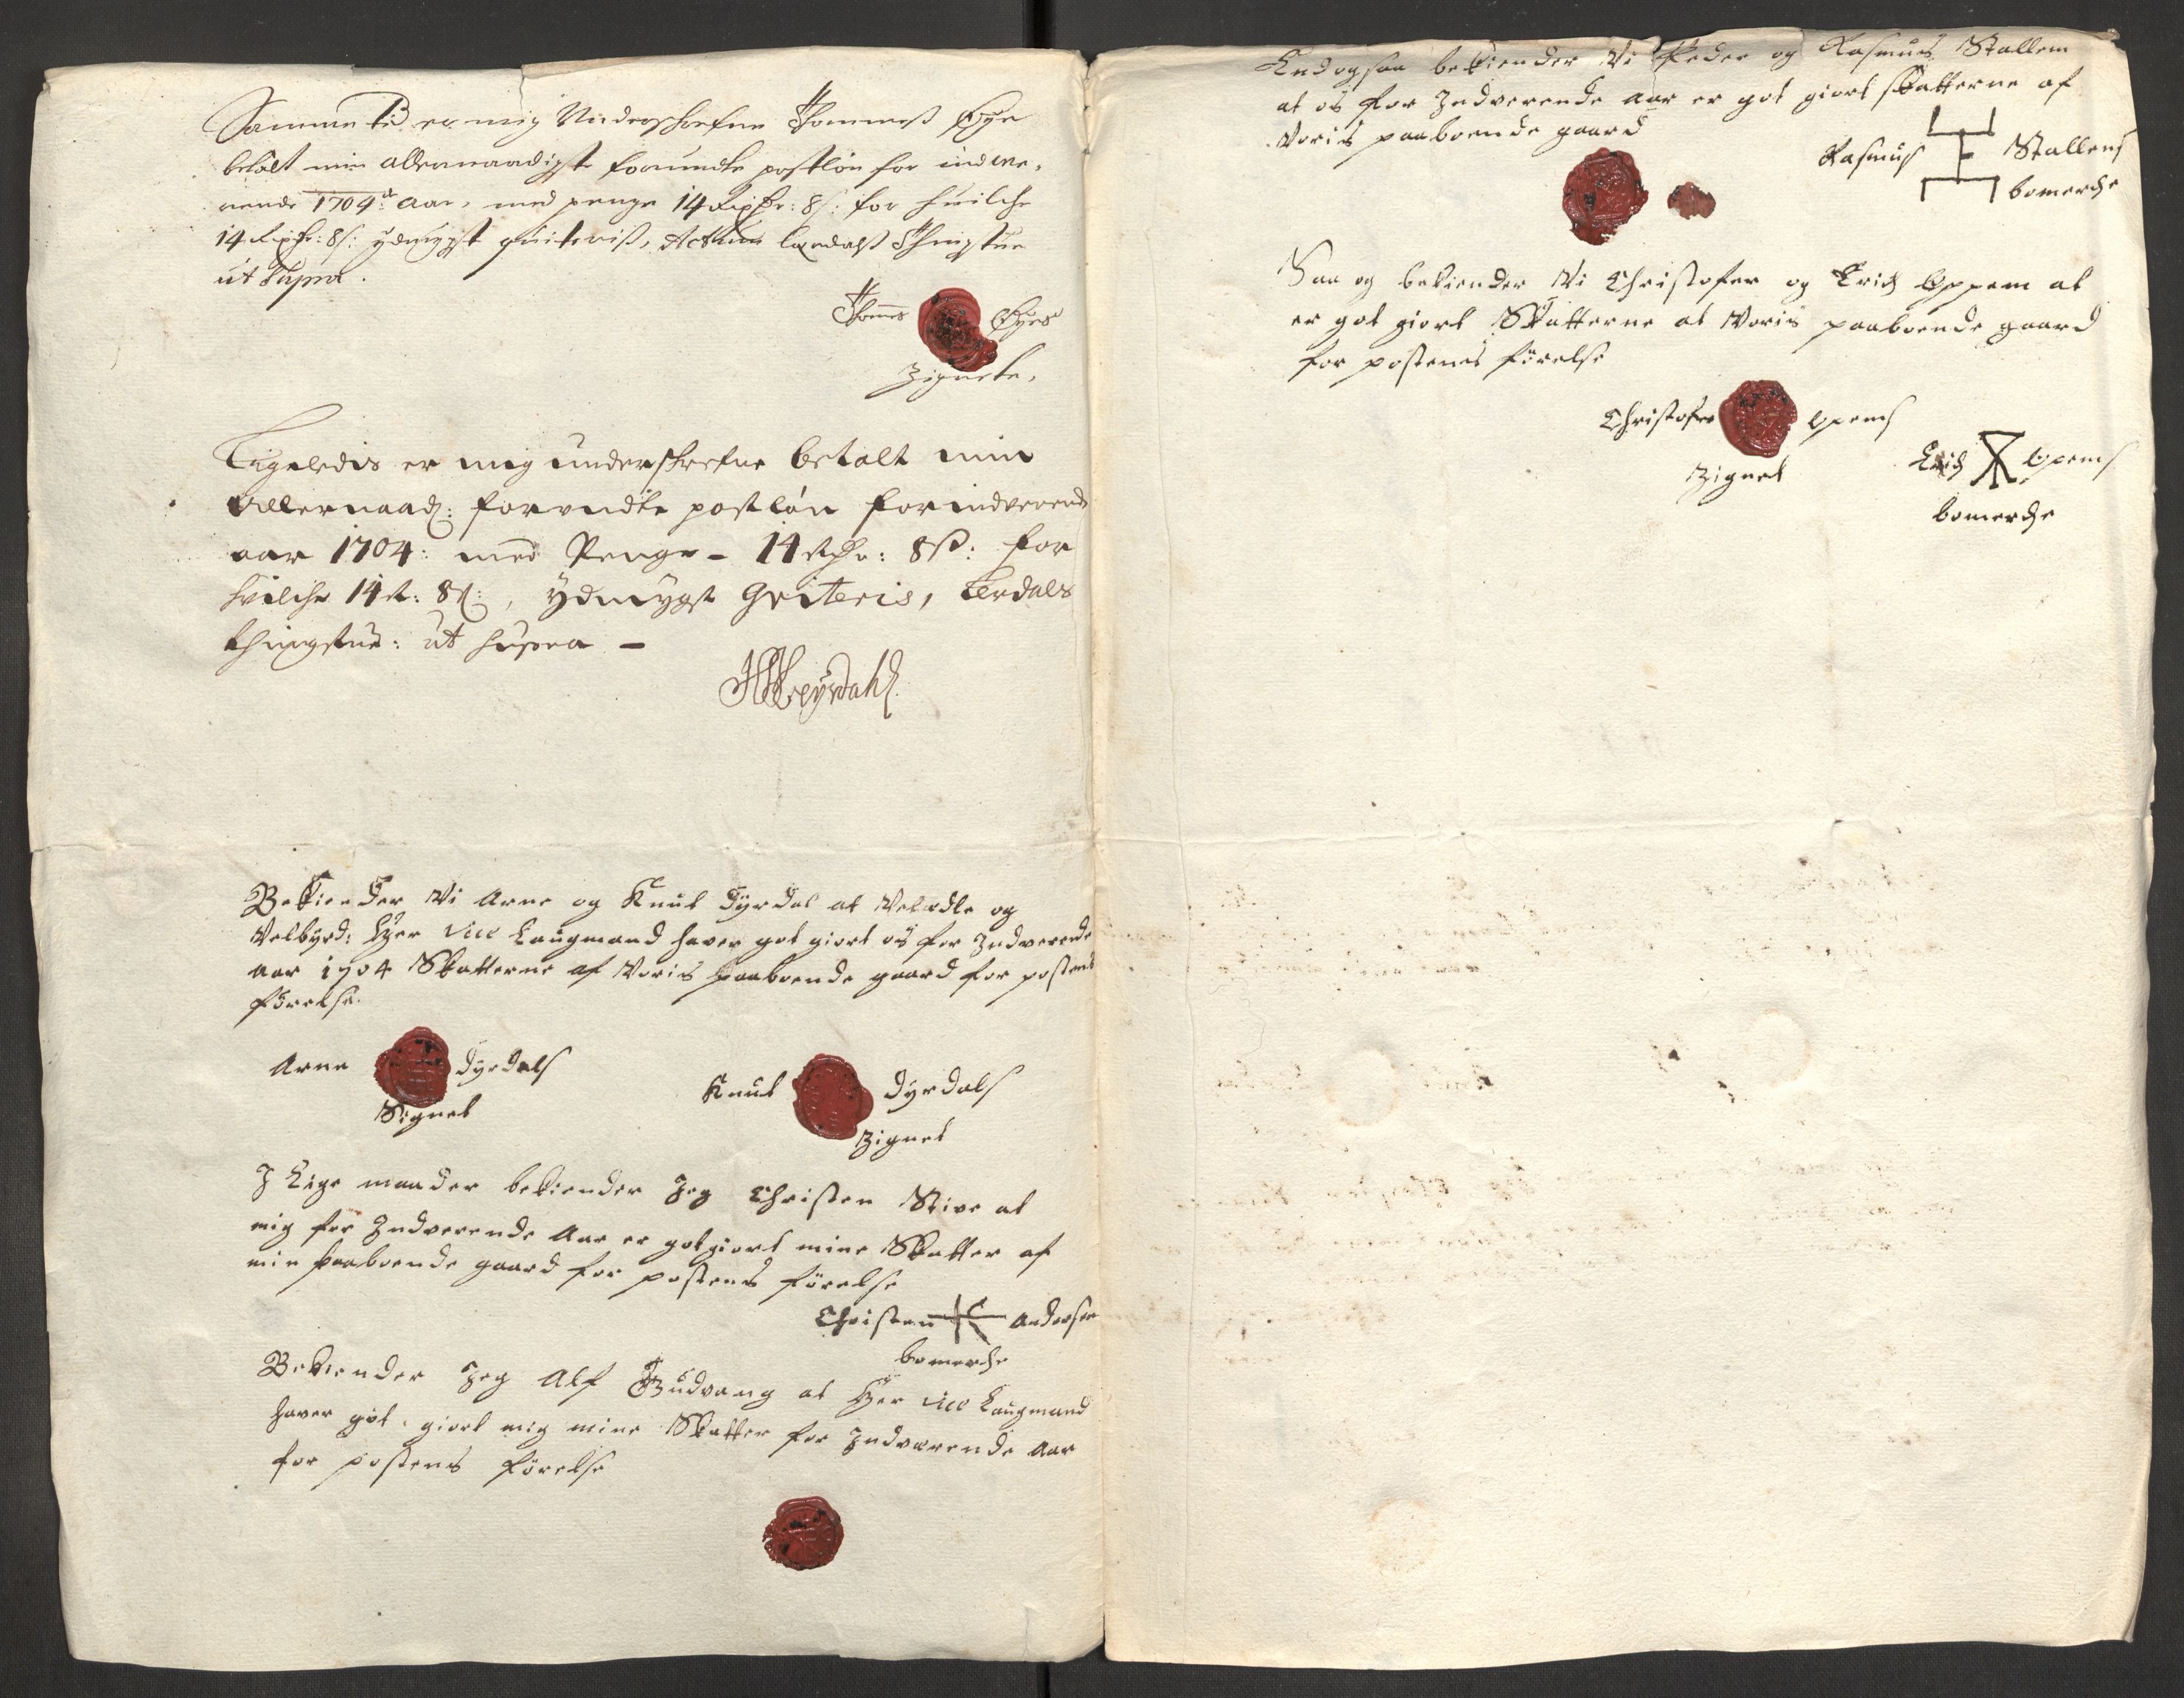 Samme tid er mig Underschrefne Thommes Øye
betalt min allernaadigste forundte postløn for indve-
rende 1704de Aar, med penge 14 Rixdr: 8 s: for huilche
14 Rixdr: 8 s: ydmygst quiteris, Actum Lærdals Thingstue
ut supra.
Thomes Øyes
Zignete,
Ligeledis er mig underschrefne betalt min
allernaad: forundte postløn for indverende
aar 1704: med Penge - 14 Rdr: 8 s: for
hvilche 14 R: 8 s:, ydmygst Qviteris, Lerdals
thingstue: ut supra -
Bekiender Vi Arne og Knut Dyrdal at Velædle og
Velbyrd: Hr vice Laugmand haver got giort os for Indverende
aar 1704 Skatterne af Voris paaboende gaard for postens
førelse.
Arne Dyrdals
Signet
Knut Dyrdals
Zignet
I Lige maader bekiender Jeg Christen Stive at
mig for Indverende Aar er got giort mine Skatter af
min paaboende gaard for postens førelse
Christen Andersen
bomerche
Bekiender Jeg Alf Gudvang at Hr vice Laugmand
haver got giort mig mine Skatter for Indværende Aar
for postens førelse
End ogsaa bekiender Vi Peder og Rasmus Stallem
at os for Indverende aar er got giort skatterne af
Voris paaboende gaard
Rasmus Stallens
bomerche
Saa og bekiender Vi Christofer og Erich Oppem at
er got giort Skatterne at Voris paaboende gaard
for postens førelse
Christofer Opems
Zignet
Erich Opems
bomerche